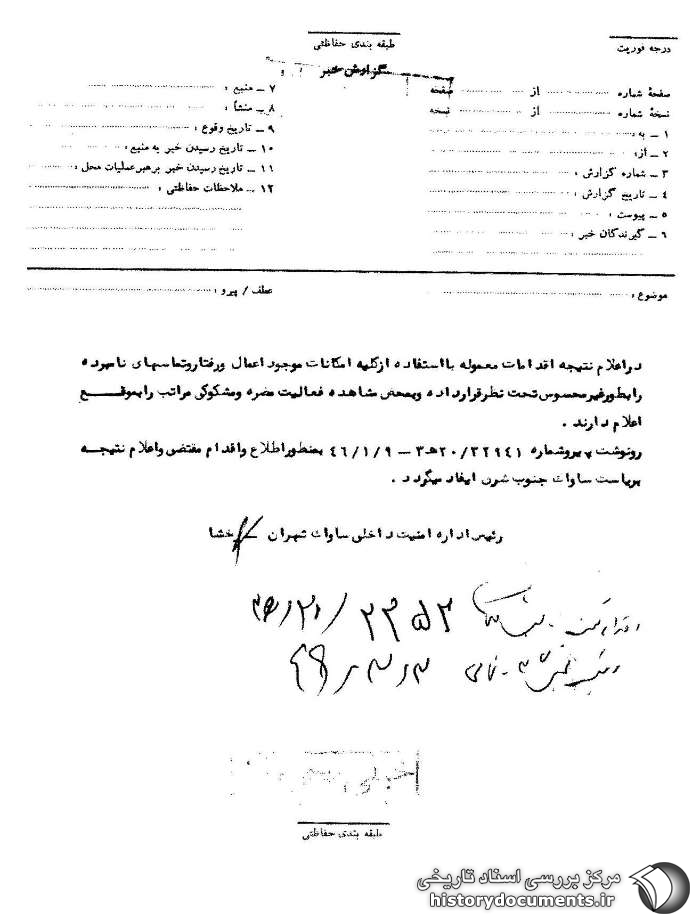 طبقه بندی حفاظتی
درجه فوریت
گزارش خبر
صفحۀ شماره .......... از .......... صفحه
نسخۀ شماره .......... از .......... نسخه
۱ ـ به:
۲ ـ از:
۳ ـ شماره گزارش :
۴ ـ تاریخ گزارش :
۵ ـ پیوست :
۶ ـ گیرندگان خبر :
۷ ـ منبع :
۸ ـ منشأ :
۹ ـ تاریخ وقوع :
۱۰ ـ تاریخ رسیدن خبر به منبع :
۱۱ ـ تاریخ رسیدن خبر برهبر عملیات محل :
۱۲ ـ ملاحظات حفاظتی :
موضوع :
عطف / پیرو :
در اعلام نتیجه اقدامات معموله با استفاده از کلیه امکانات موجود اعمال و رفتار و تماسهای نامبرده
را بطور غیر محسوس تحت نظر قرار داده و بمحض مشاهده فعالیت مضره و مشکوکی مراتب را بموقع
اعلام دارند .
رونوشت پیرو شماره ۲۰/۳۲۹۴۱ هـ ۳ – ۴۶/۱/۹ بمنظور اطلاع و اقدام مقتضی و اعلام نتیجه
بریاست ساواك جنوب شرق ایفاد میگردد .
رئیس اداره امنیت داخلی ساواك تهران
طبقه بندی حفاظتی
مرکز بررسی اسناد تاریخی
historydocuments.ir